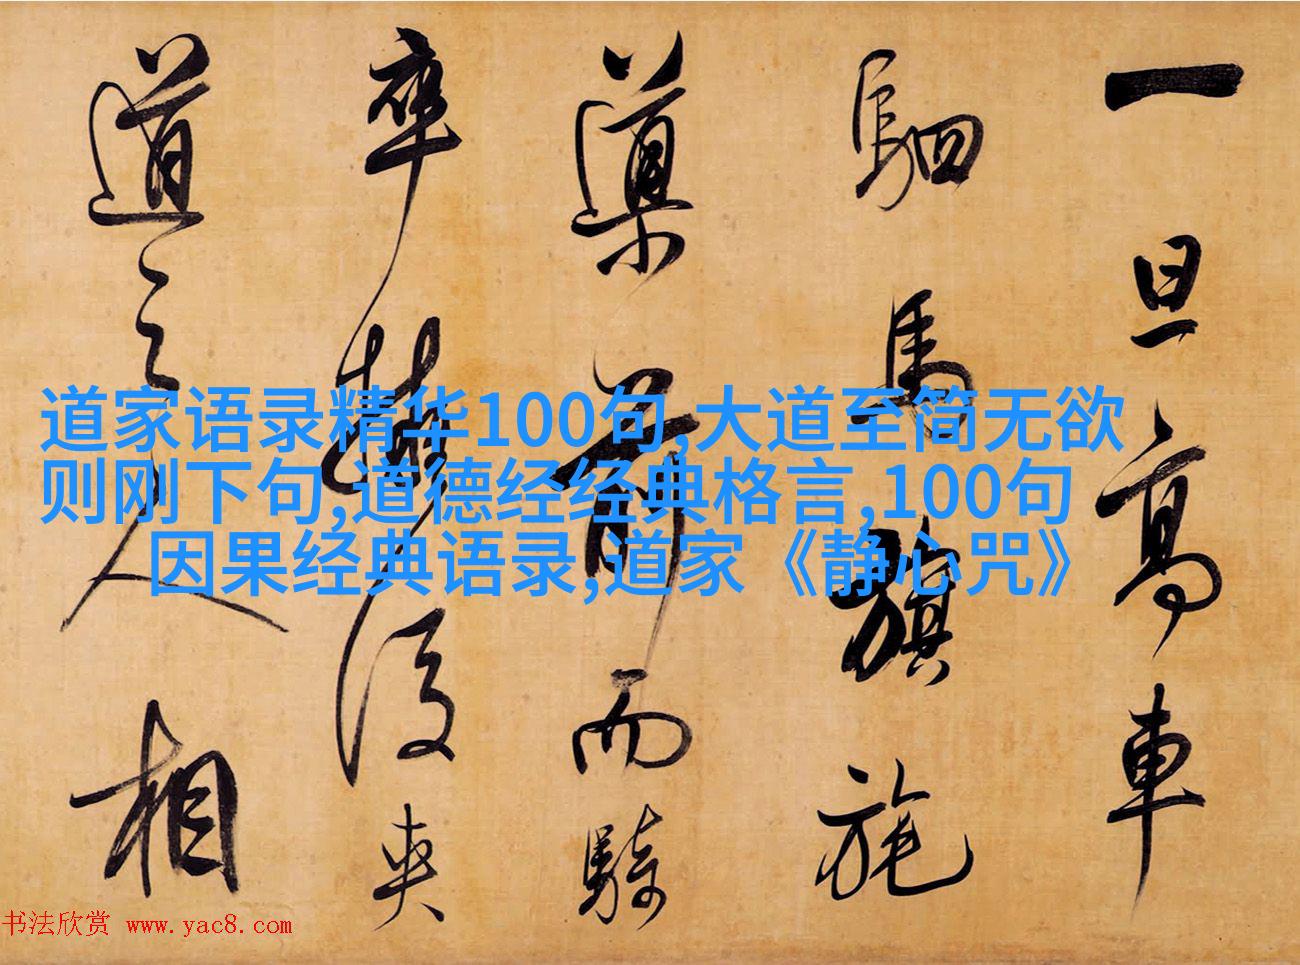 一旦高車
駟馬旗旄
導前而騎
卒擁後夾
道之人相
道家语录精华100句,大道至简无欲
则刚下句,道德经经典格言,100句
因果经典语录,道家《静心咒》
书法欣赏 www.yac8.com